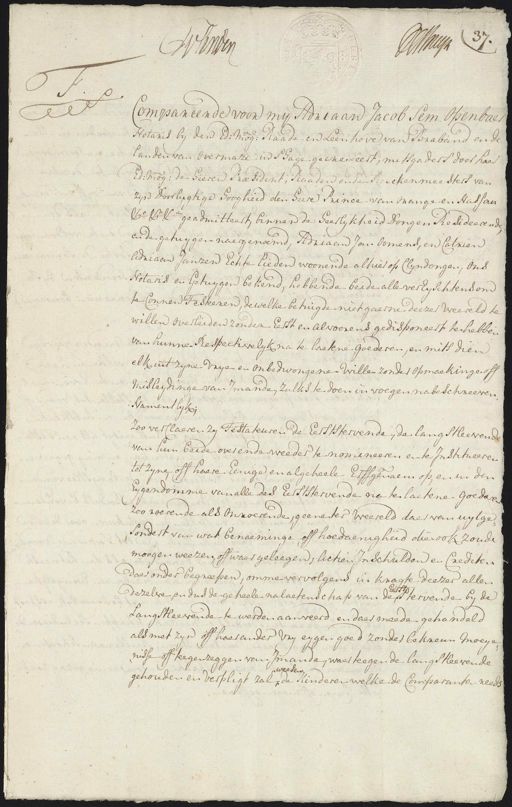 37.
Compareerde voor mij Adriaan Jacob Sem Ossenbaes
Notaris bij den Ed: Mog: Raade en Leenhove van Braband en de
Landen van Overmaze in S'Hage geresideert, mitsgaders door haer
Ed: Mog: de Heere President, Raaden en de Reekenmeesters van
zijn Doorlugtige Hoogheid den Heere Prince van Orange en Nassau
geadmitteert, binnen de Heerlijkheid Dongen Resideerende
ende getuygen naergenoemd, Adriaan Jan Oomens, en
Adriaan Janzen Echte Lieden woonende alhier op Cleyndongen, ons
Notaris en Getuygen bekend, hebbende beide alle vereyschtens om
te Connen Testeeren, dewelke betuigde niet gaerne deeze Weereld te
willen overleiden zonder Eerst en alvoorens gedisponeert te hebben
van hunne Respectivelijk na te laetene Goederen, en mits dien
elk uit zijne Vrije en onbedwongene Wille zonder opmaekinge off
misleydinge van Imande, zulks te doen in voegen nabeschreeven.
Namentlijk,
Zoo verklaeren zij Testateuren de Eerststervende, de langstleevende
van hun beide over ende weeder te nomineeren en te Institueeren
tot zijne off haere Eenige en algeheele Erffgenaem op, en in den
Eygendomme van alle des Eerststervende na te laetene Goederen
zoo roerende als Onroerende, geene ter Weereld daer van uytge-
sondert van wat benaeminge off hoedaenigheid die ook zoude
moogen weezen, off waer geleegen, Actien Inschulden en Crediten
daer onder begreepen, omme vervolgens in kragte deezer alle
dezelve en dus de geheele nalaetenschap van de Eerst stervende bij de
Langstleevende te werden aenveerd en daer meede gehandeld
als met zijn off haer ander Vrij eygen goed zonder bekreun Moeye-
nisse off tegenzeggen van Imande, waer teegen de langstleevende
gehouden en verpligt zal weezen, de Kinderen welke de Comparante reeds